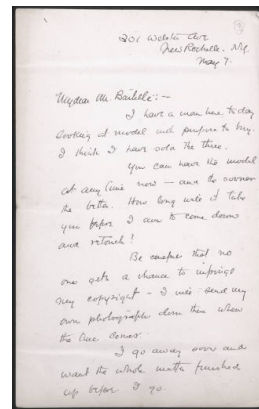 301 Webster Ave
New Rochelle. N.Y.
May 7.
My dear Mr. :—
I have a man here to day
looking at model and prepare to buy.
I think I have sold the three.
You can have the model
at any time now — and the sooner
the better. How long will it take
you before I am to come down
and retouch!
Be careful that no
one gets a chance to infringe
my copyright — I will send my
own photographer down there when
the time comes.
I go away soon and
want the whole matter finished
up before I go.